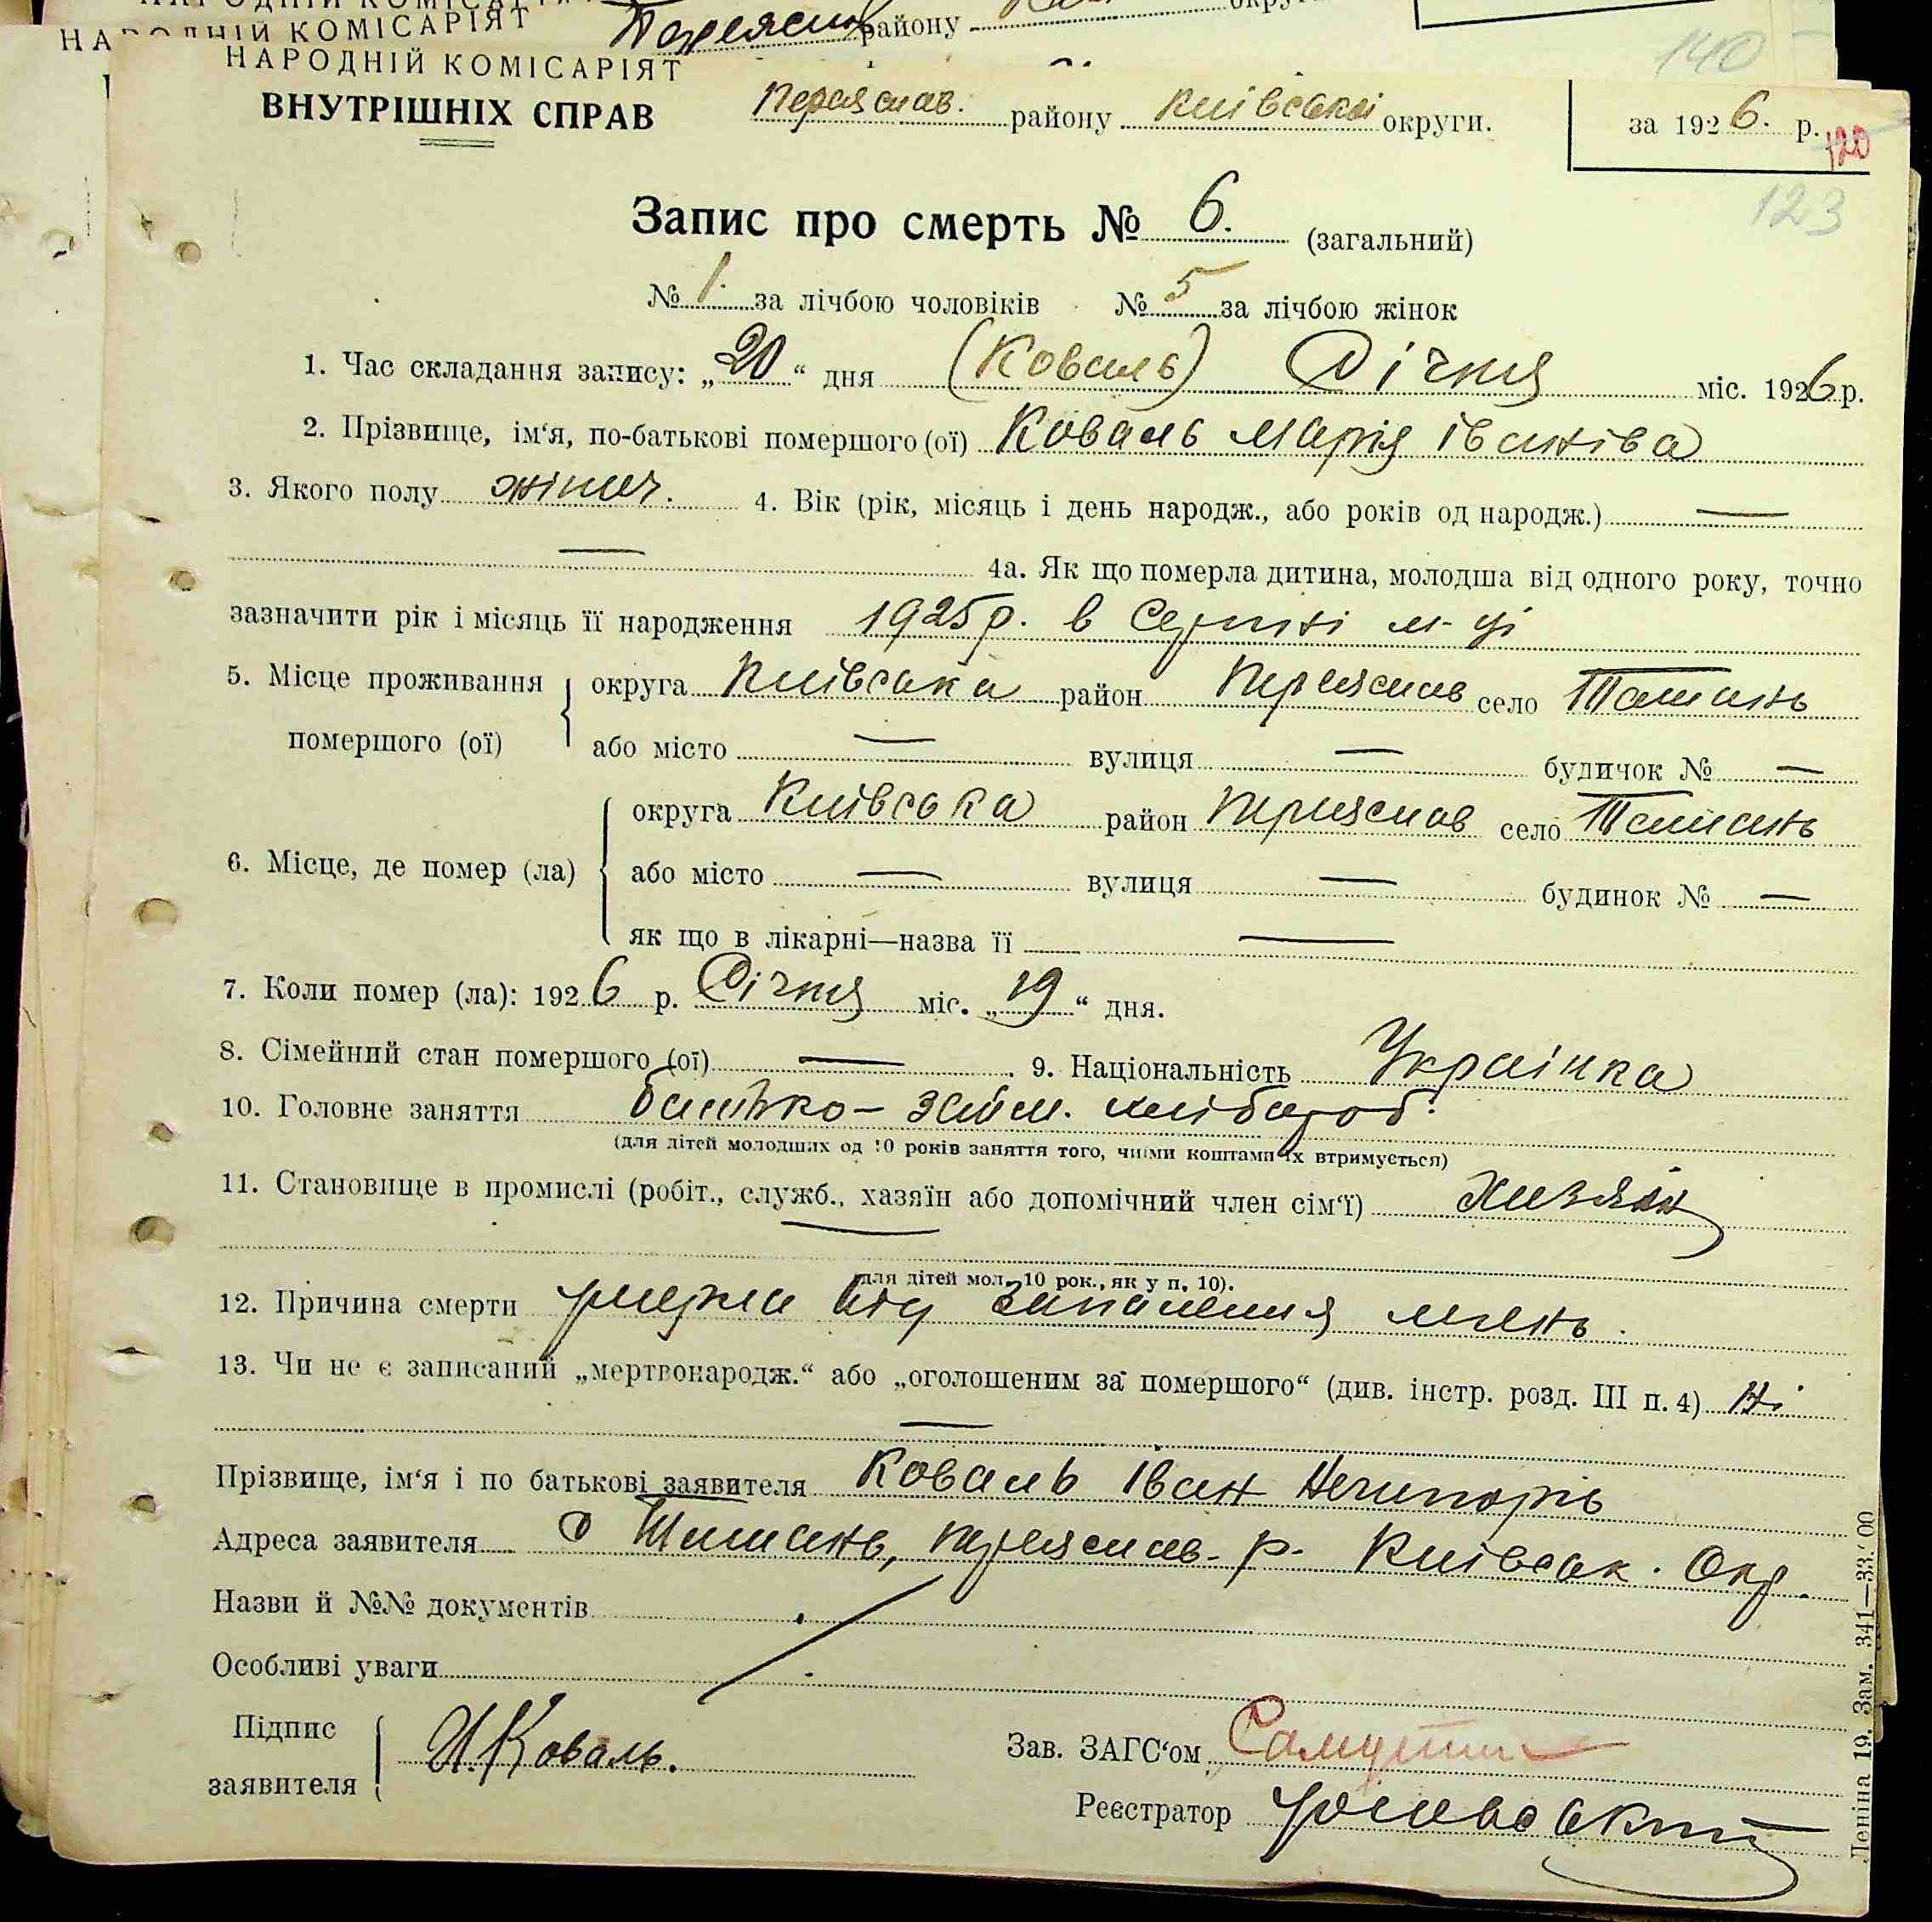 НАРОДНІЙ КОМІСАРІЯТ
району
140
НАРОДНІЙ КОМІСАРІЯТ
ВНУТРІШНІХ СПРАВ
Переяслав. району Київської округи.
за 1926. р.
120
123
Запис про смерть № 6. (загальний)
№ 1. за лічбою чоловіків № 5 за лічбою жінок
1. Час складання запису: „20“ дня (Коваль) Січня міс. 1926 р.
2. Прізвище, ім‘я, по-батькові помершого (ої) Коваль Марія Іванівa
3. Якого полу жіноч. 4. Вік (рік, місяць і день народж., або років од народж.) —
— 4а. Як що померла дитина, молодша від одного року, точно
зазначити рік і місяць її народження 1925 р. в Серпні м-ці
5. Місце проживання помершого (ої) округа Київська район Переяслав село Ташань
або місто — вулиця — будинок № —
6. Місце, де помер (ла) округа Київська район Переяслав село Ташань
або місто — вулиця — будинок № —
як що в лікарні—назва її —
7. Коли помер (ла): 1926 р. Січня міс. „19“ дня.
8. Сімейний стан помершого (ої) — . 9. Національність Українка
10. Головне заняття батько – займ. хлібороб.
(для дітей молодших од 10 років заняття того, чиїми коштами їх втримується)
11. Становище в промислі (робіт., служб., хазяїн або допомічний член сім‘ї) Хазяїн
—
для дітей мол. 10 рок., як у п. 10).
12. Причина смерти умерла від запалення
13. Чи не є записаний „мертвонародж.“ або „оголошеним за помершого“ (див. інстр. розд. III п. 4) Ні
—
Прізвище, ім‘я і по батькові заявителя Коваль Іван Ничипорів
Адреса заявителя с Ташань, Переяслав. р. Київськ. Окр.
Назви й №№ документів
Особливі уваги
Підпис заявителя И. Коваль.
Зав. ЗАГС‘ом
Реєстратор
Леніна 19. Зам. 341—33.